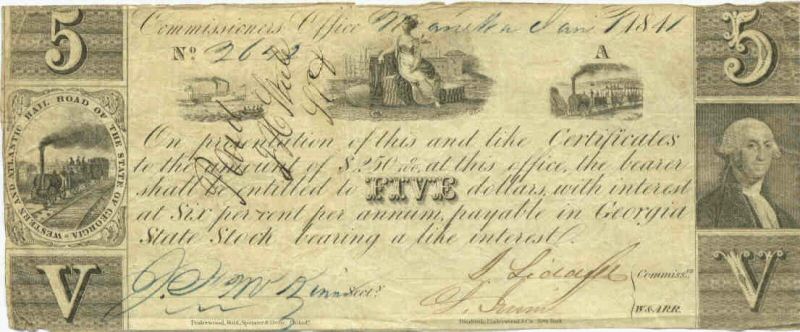 5
5
Commissioners Office Jany 1 1841
No. 2622
A
Paid
WESTERN AND ATLANTIC RAIL ROAD OF THE STATE OF GEORGIA
On presentation of this and like Certificates
to the amount of $250 at this office, the bearer
shall be entitled to FIVE dollars, with interest
at Six per cent per annum, payable in Georgia
State Stock bearing a like interest.
Sect'y.
Commiss.rs
W&ARR.
V
V
Underwood, Bald, Spencer & Hufty,
Underwood & Co. New York